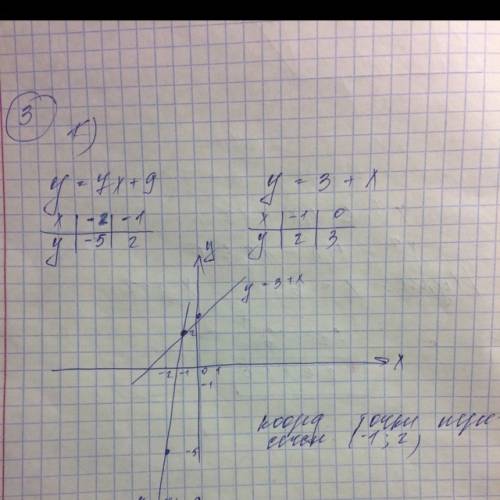 3
1)
y = 7x+9
y = 3 + x
x | -2 | -1
y | -5 | 2
x | -1 | 0
y | 2 | 3
y
y = 3+x
2
x
-2 -1 0 1
-1
-5
коорд точки пере
сечен (-1; 2)